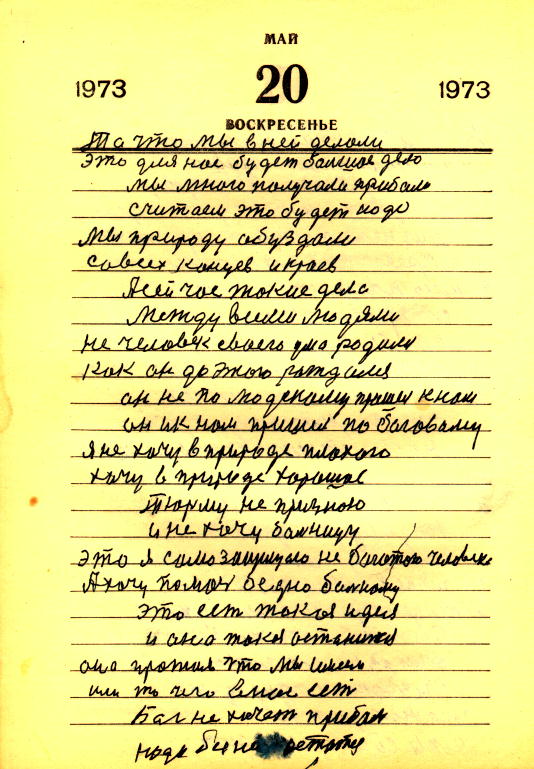 МАЙ
1973 20 1973
ВОСКРЕСЕНЬЕ
Та что мы в ней делоли
Это для нос будет балшое дело
мы много получали прибал
считаем это будет нодо
Мы природу обуздали
Со всех концев и краев
А сей час токие дела
Между всеми людями
не человек своего ума родили
Как он до этого рождался
он не по людскому пришел к ном
он и к ном пришел по Боговому
Я не хочу в природе плохого
хочу в природе хорошое
Тюрму не признаю
и не хочу балницу
Это я само защищаю не богатого человека
А хочу помоч бедно балному
Это ест токоя идея
и оно токоя останится
оно против что мы
или то чего ест
Бог не хочет прибал
нодо бы